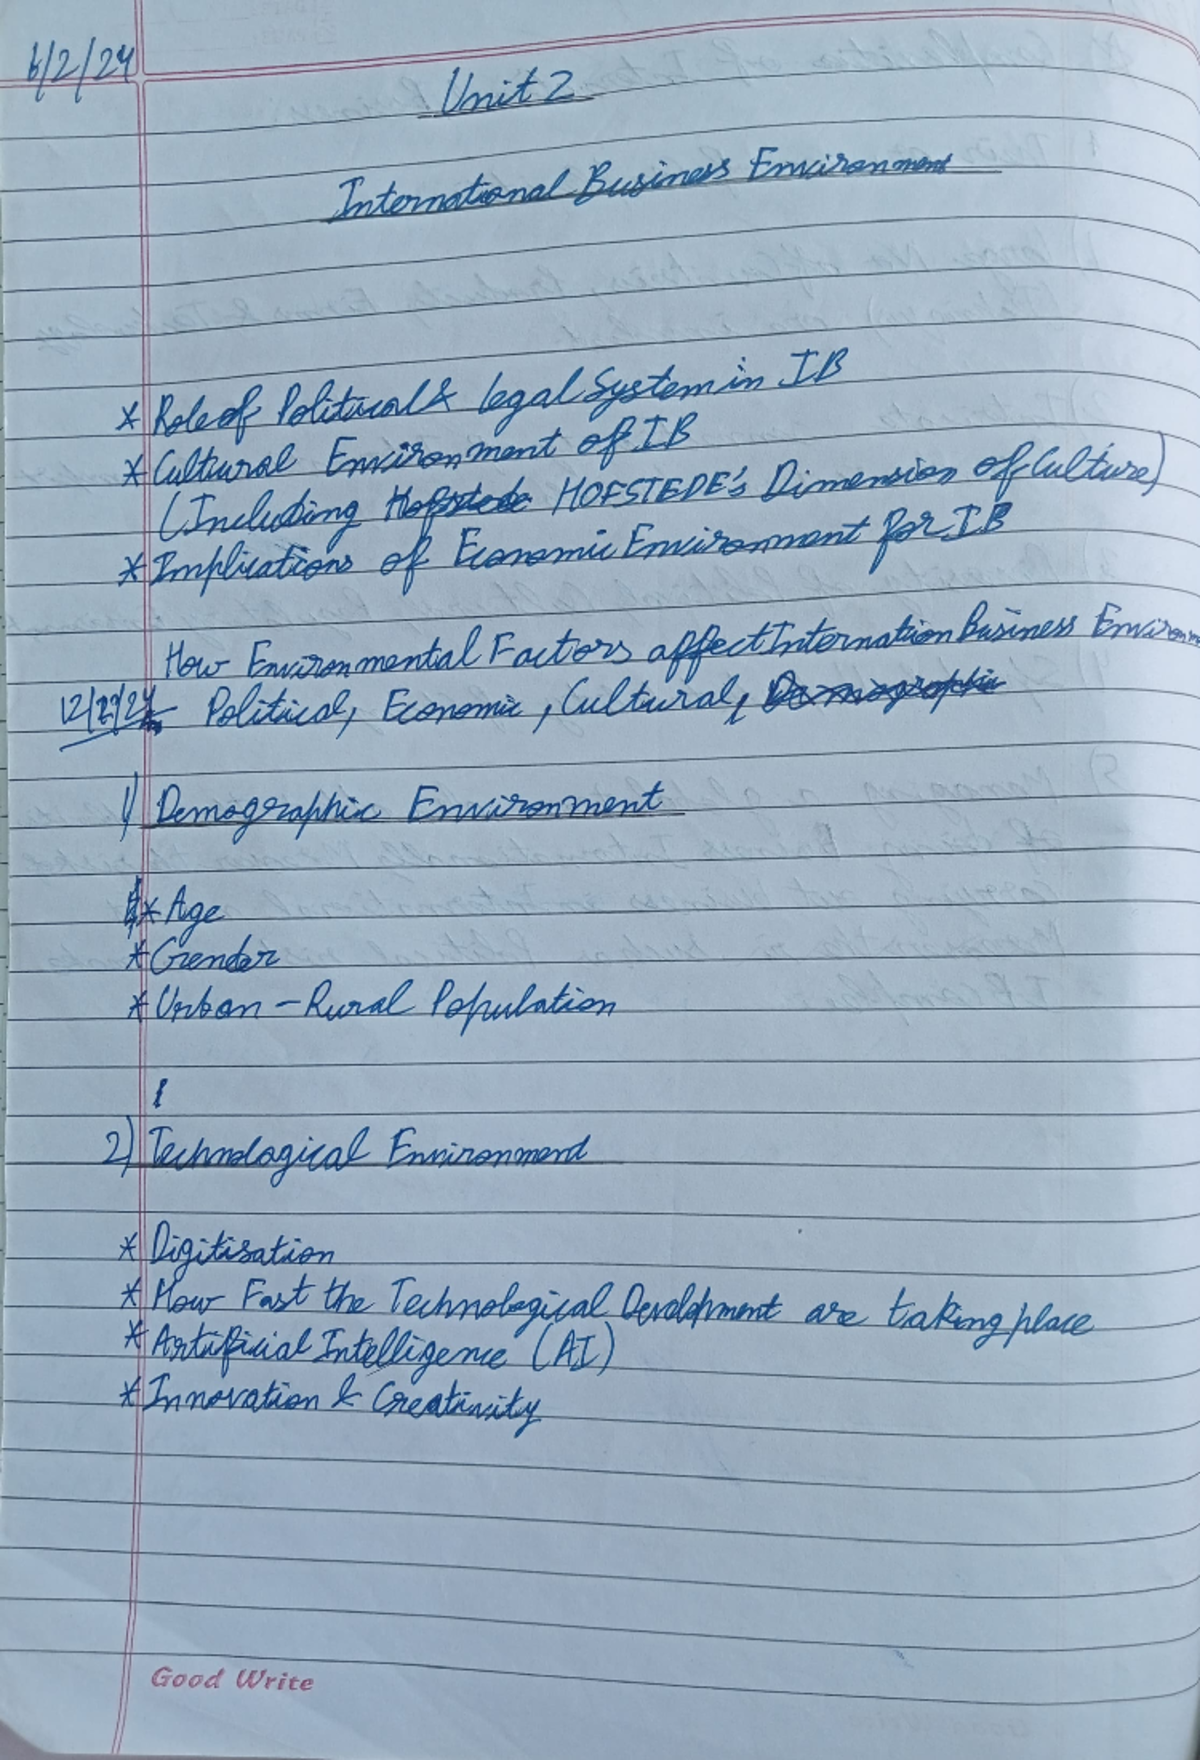 6/2/24
Unit 2
International Business Environment
* Role of Political & Legal System in IB
* Cultural Environment of IB
(Including Hofstede HOFSTEDE's Dimension of Culture)
* Implications of Economic Environment for IB
How Environmental Factors affect Internation Business Environme
Political, Economic, Cultural, Demographic
1) Demographic Environment
* Age
* Gender
* Urban - Rural Population
2) Technological Environment
* Digitisation
* How Fast the Technological Development are taking place
* Artificial Intelligence (AI)
* Innovation & Creativity
Good Write